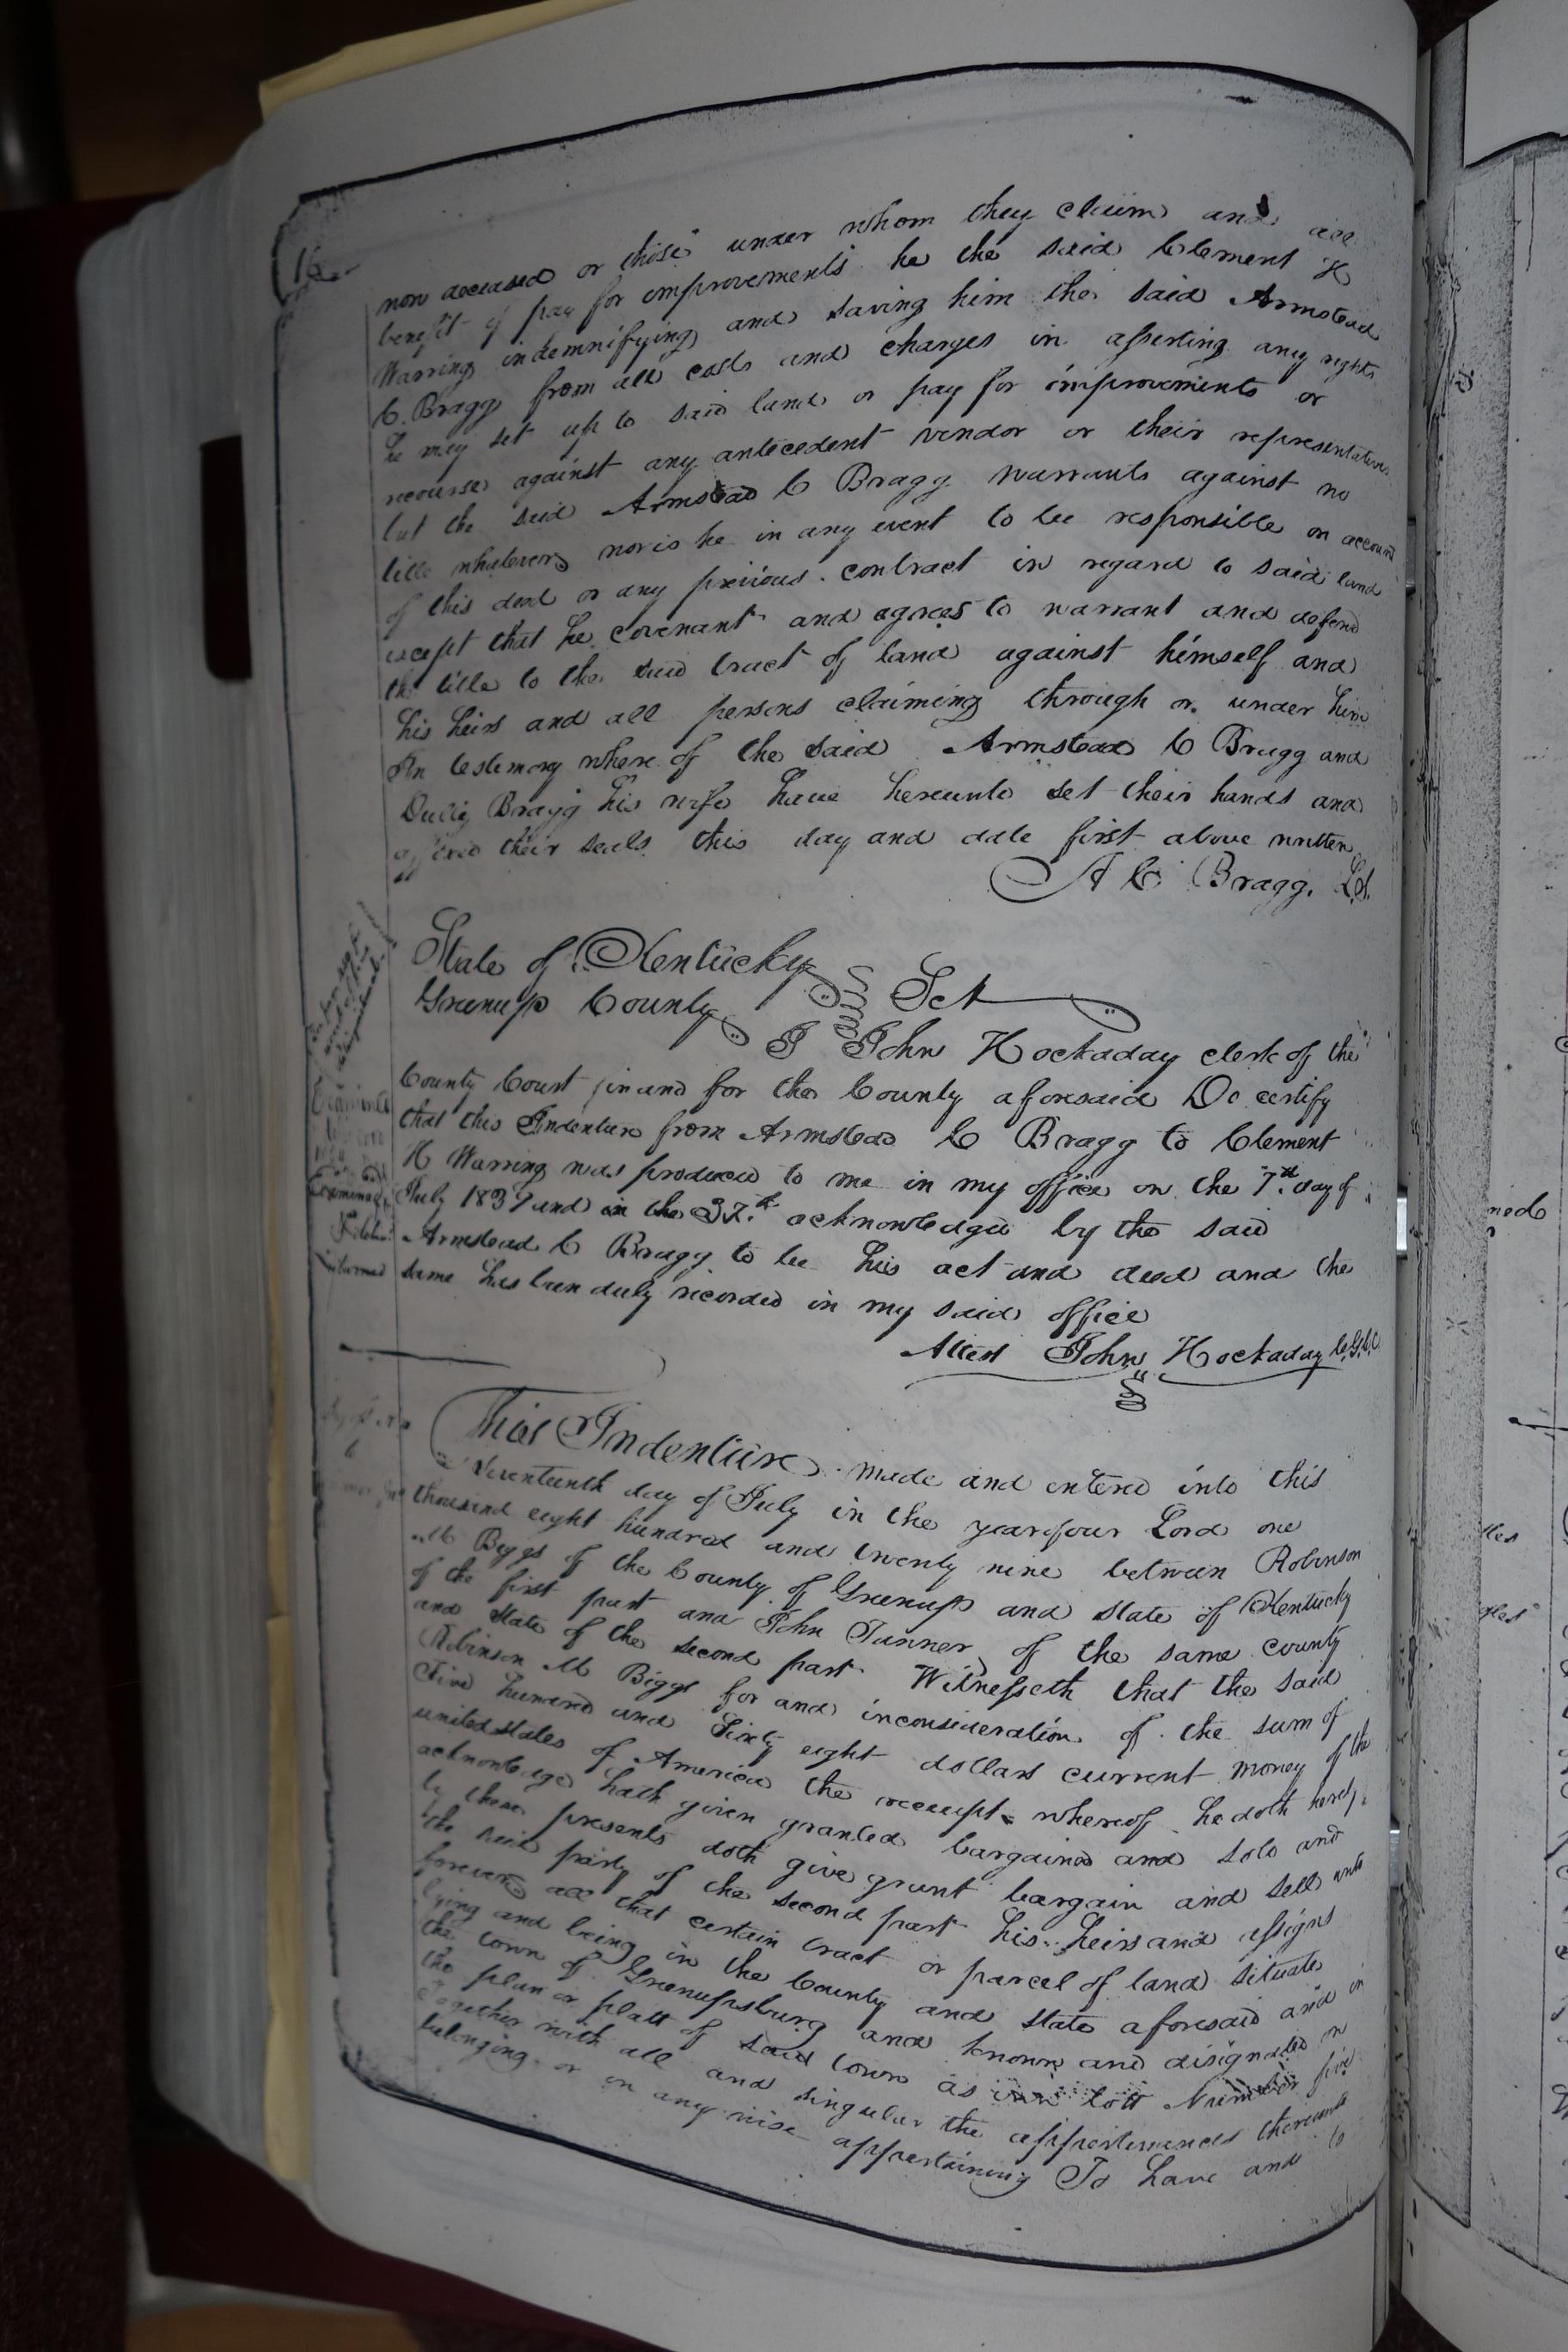 16
now deceased or those under whom they claim and all
benefit of pay for improvements he the said Clement H
Warring indemnifying and saving him the said Armstead
C. Bragg from all costs and charges in asserting any rights
he may set up to said land or pay for improvements or
recourse against any antecedent vendor or their representatives
but the said Armstead C Bragg warrants against no
title whatever nor is he in any event to be responsible on account
of this deed or any previous contract in regard to said land
except that he covenant and agrees to warrant and defend
the title to the said tract of land against himself and
his heirs and all persons claiming through or under him
In testimony where of the said Armstead C Bragg and
Bragg his wife have hereunto set their hands and
affixed their seals this day and date first above written
A C Bragg. L.S.
State of Kentucky
Greenup County Sct
I John Hockaday clerk of the
County Court in and for the County aforesaid Do certify
that this Indenture from Armstead C Bragg to Clement
H Warring was produced to me in my office on the 7th day of
July 1839 and in the acknowledged by the said
Armstead C Bragg to be his act and deed and the
same has been duly recorded in my said office
Attest John Hockaday C.G.C.C.
Examined
This Indenture made and entered into this
Seventeenth day of July in the year of our Lord one
thousand eight hundred and twenty nine between Robinson
M Biggs of the County of Greenup and state of Kentucky
of the first part and John Tanner of the same county
and state of the second part Witnesseth that the said
Robinson M Biggs for and inconsideration of the sum of
Five hundred and Sixty eight dollars current money of the
united states of America the receipt whereof he doth hereby
acknowledge hath given granted bargained and sold and
by these presents doth give grant bargain and sell unto
the said party of the second part his heirs and assigns
forever all that certain tract or parcel of land situate
lying and being in the County and state aforesaid and in
the town of Greenupsburg and known and disignated on
the plan or platt of said town as inn lott Number five
Together with all and singular the appertenances thereunto
belonging or in any wise appertaining To have and to